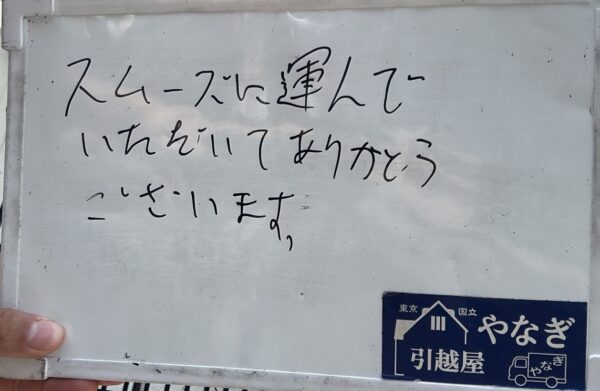 スムーズに運んで
いただいてありがとう
ございます。
東京 国立 やなぎ
引越屋 やなぎ